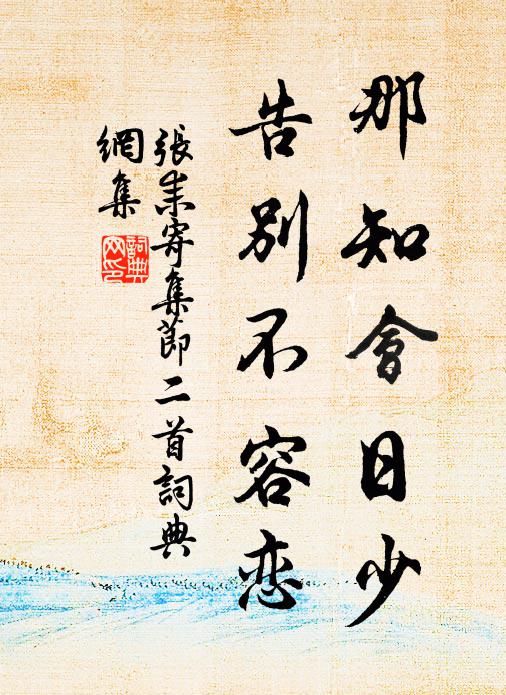 那知會日少
告別不容恋
張耒寄集節二首詞典
網集
詞典
网印